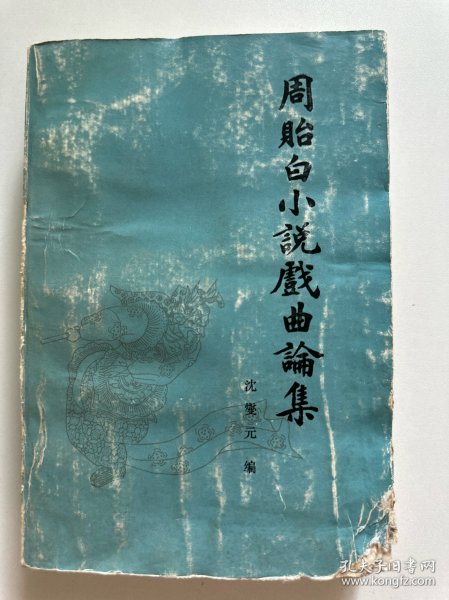 周貽白小說戲曲論集
沈燮元 編
孔夫子旧书网
www.kongfz.com